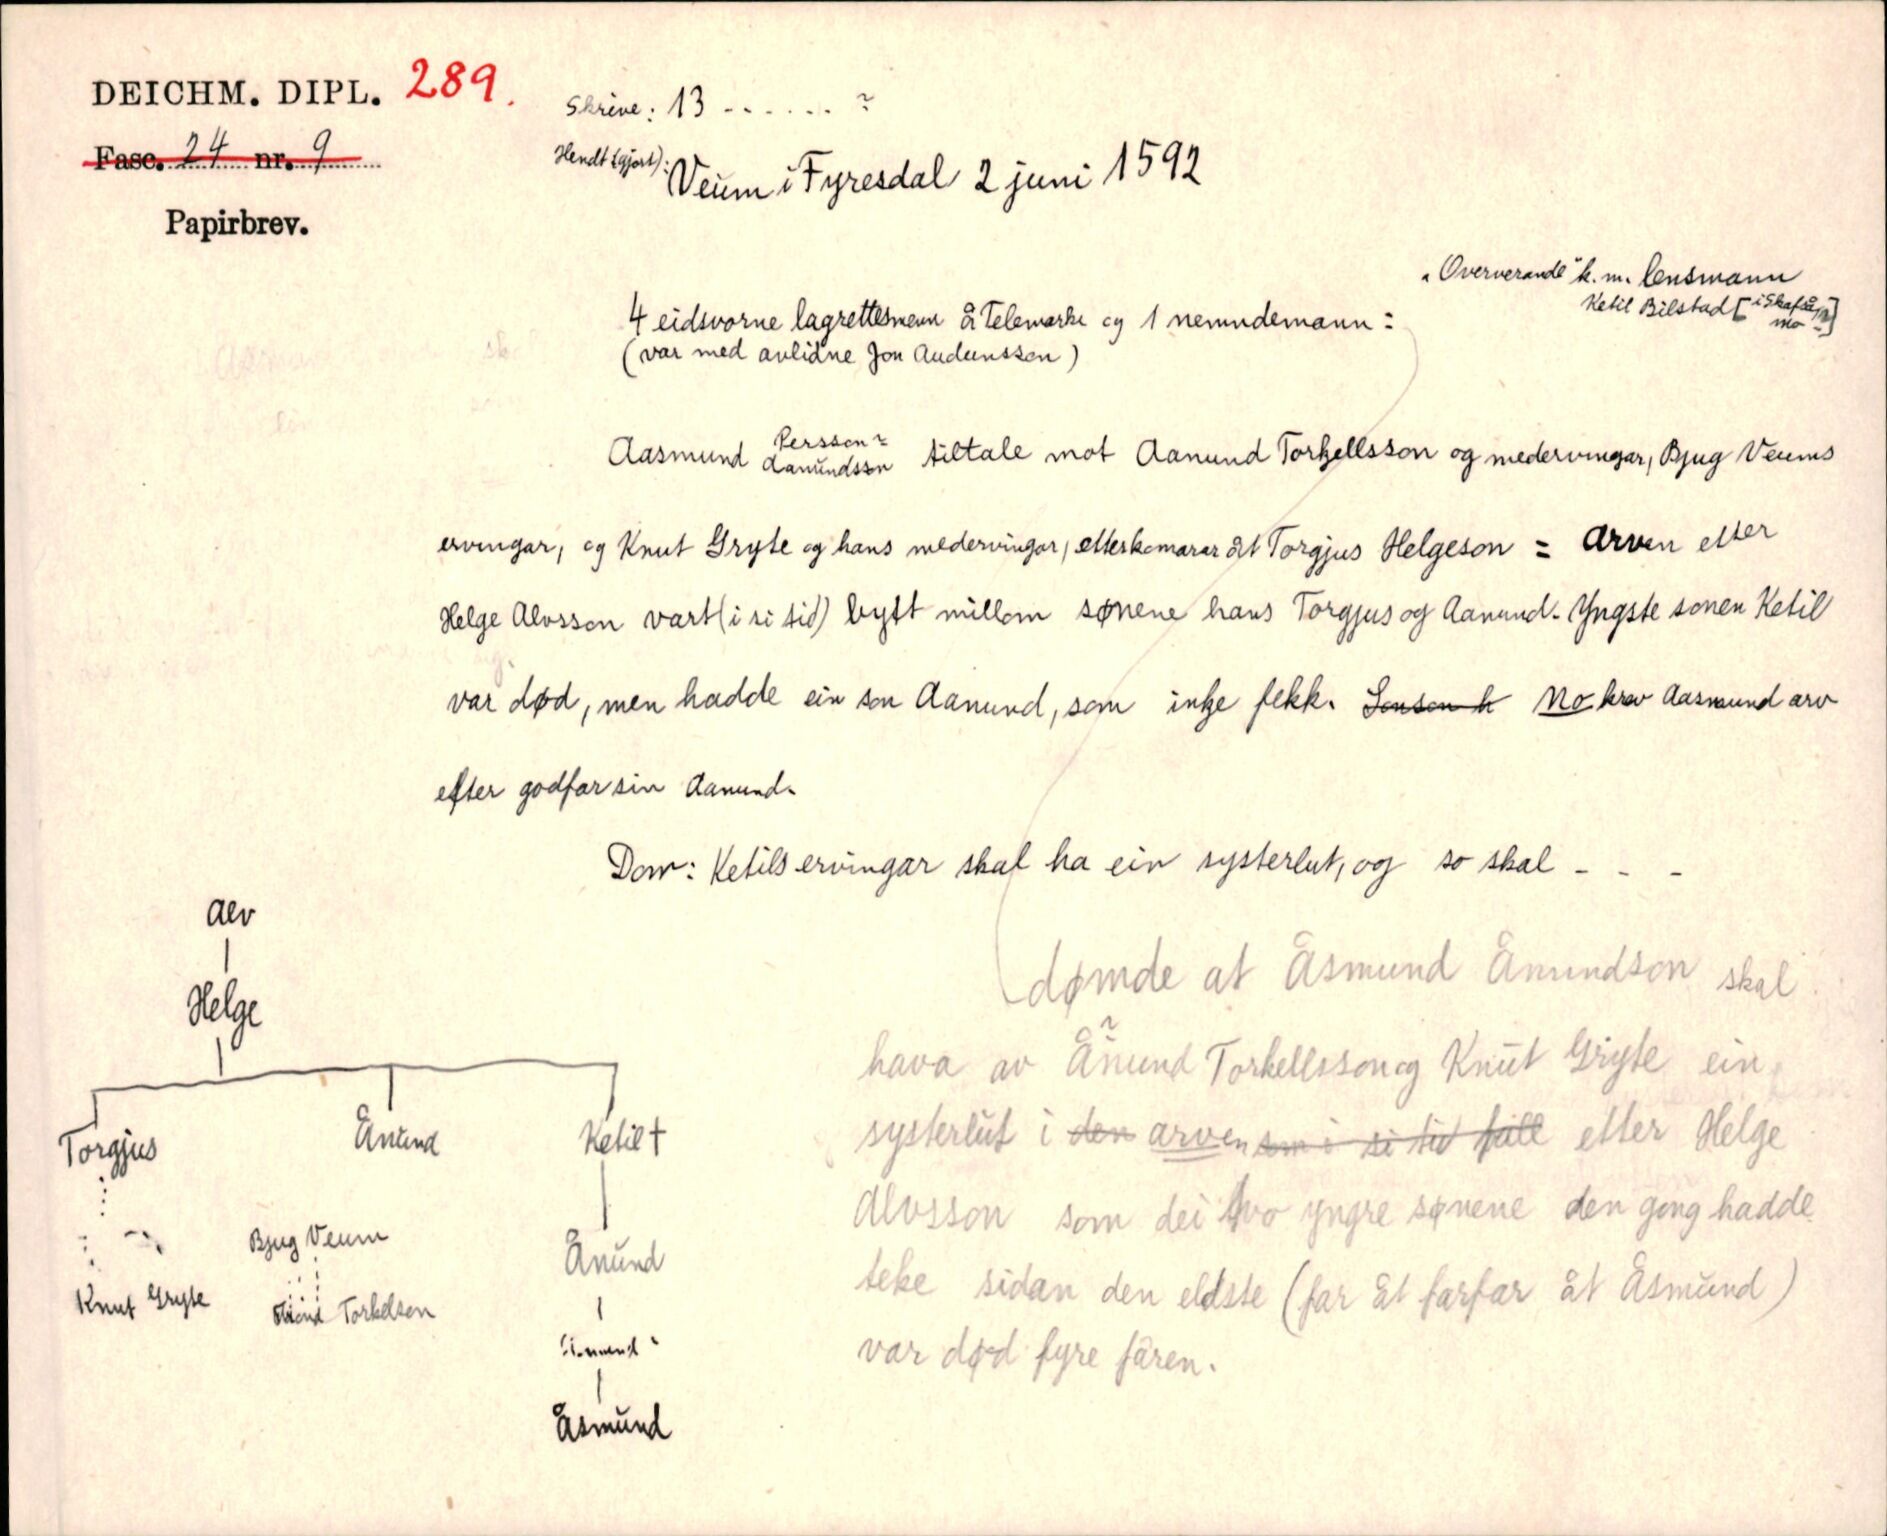 DEICHM. DIPL. 289.
Fasc. 24 nr. 9
Papirbrev.
Skrive: 13 - - - - - - ?
Hendt (gjort): Veum i Fyresdal 2 juni 1592
"Oververande" k. m. lensmann
Ketil Bilstad [i Skafså, Mo ?]
4 eidsvorne lagrettesmenn å Telemarki og 1 nemndemann:
(var med avlidne Jon Audunsson)
Persson ?
Aasmund Aanundssn tiltale mot Aanund Torkellsson og medervingar, Bjug Veums
ervingar, og Knut Gryte og hans medervingar, etterkomarar åt Torgjus Helgeson = Arven etter
Helge Alvsson vart (i si tid) bytt millom sønene hans Torgjus og Aanund. Yngste sonen Ketil
var død, men hadde ein son Aanund, som inkje fekk. Sonson h No krev Aasmund arv
efter godfar sin Aanund.
Dom: Ketils ervingar skal ha ein systerlut, og so skal - - -
dømde at Åsmund Ånundson skal
hava av Ånund Torkellsson og Knut Gryte ein
systerlut i den arven som i si tid fall etter Helge
Alvsson som dei tvo yngre sønene den gong hadde
teke sidan den eldste (far åt farfar åt Åsmund)
var død fyre fåren.
Alv
Helge
Torgjus Ånund Ketil †
Bjug Veum
Ånund
Knut Gryte Torkelson
Åsmund